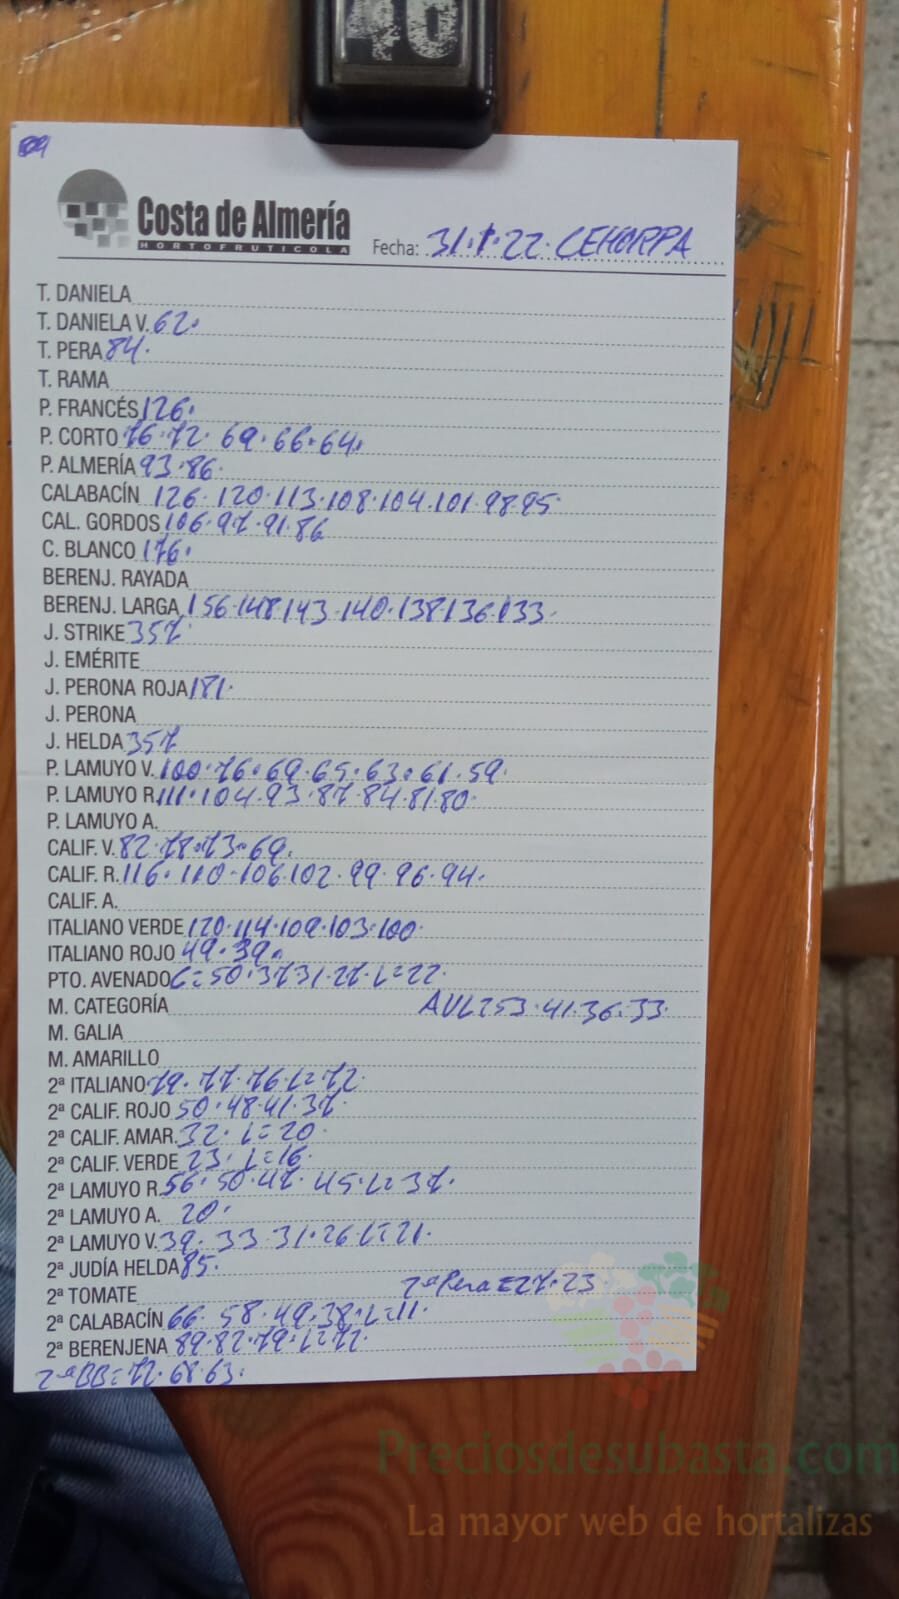 46
Costa de Almería
HORTOFRUTICOLA
Fecha: 31.1.22. CEHORPA
T. DANIELA
T. DANIELA V. 62.
T. PERA 84.
T. RAMA
P. FRANCÉS 126.
P. CORTO 76.72. 69.66.64.
P. ALMERÍA 93.86.
CALABACÍN 126.120.113.108.104.101.98.95.
CAL. GORDOS 106.97.91.86
C. BLANCO 176.
BERENJ. RAYADA
BERENJ. LARGA 156.148.143.140.138.136.133.
J. STRIKE 357.
J. EMÉRITE
J. PERONA ROJA 181.
J. PERONA
J. HELDA 357
P. LAMUYO V. 100.76.69.65.63.61.59.
P. LAMUYO R. 111.104.93.87.84.81.80.
P. LAMUYO A.
CALIF. V. 82.78.73.69.
CALIF. R. 116.110.106.102.99.96.94.
CALIF. A.
ITALIANO VERDE 120.114.109.103.100.
ITALIANO ROJO 49.39.
PTO. AVENADO C=50.37.31.27.L=22.
M. CATEGORÍA 53.41.36.33.
M. GALIA
M. AMARILLO
2ª ITALIANO 79.77.76.L=72.
2ª CALIF. ROJO 50.48.41.37.
2ª CALIF. AMAR. 32. L=20.
2ª CALIF. VERDE 23. L=16.
2ª LAMUYO R. 56.50.47.45.L=37.
2ª LAMUYO A. 20.
2ª LAMUYO V. 39.33.31.26.L=21.
2ª JUDÍA HELDA 85.
2ª TOMATE 2ª Pera=27.23
2ª CALABACÍN 66.58.49.38.L=11.
2ª BERENJENA 89.82.79.L=72.
2ª BB=72.68.63.
Preciosdesubasta.com
La mayor web de hortalizas